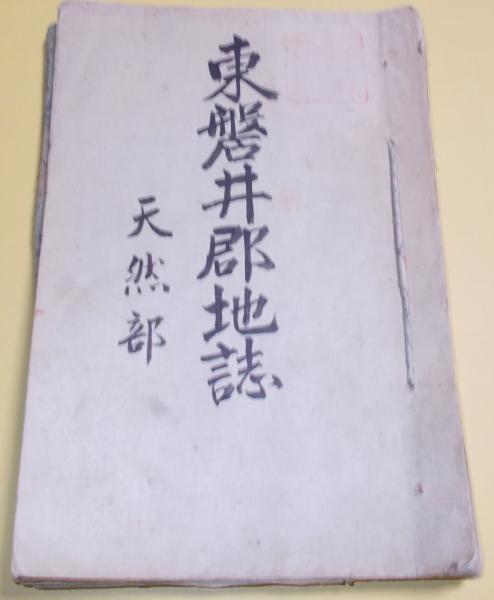 東磐井郡地誌
天然部